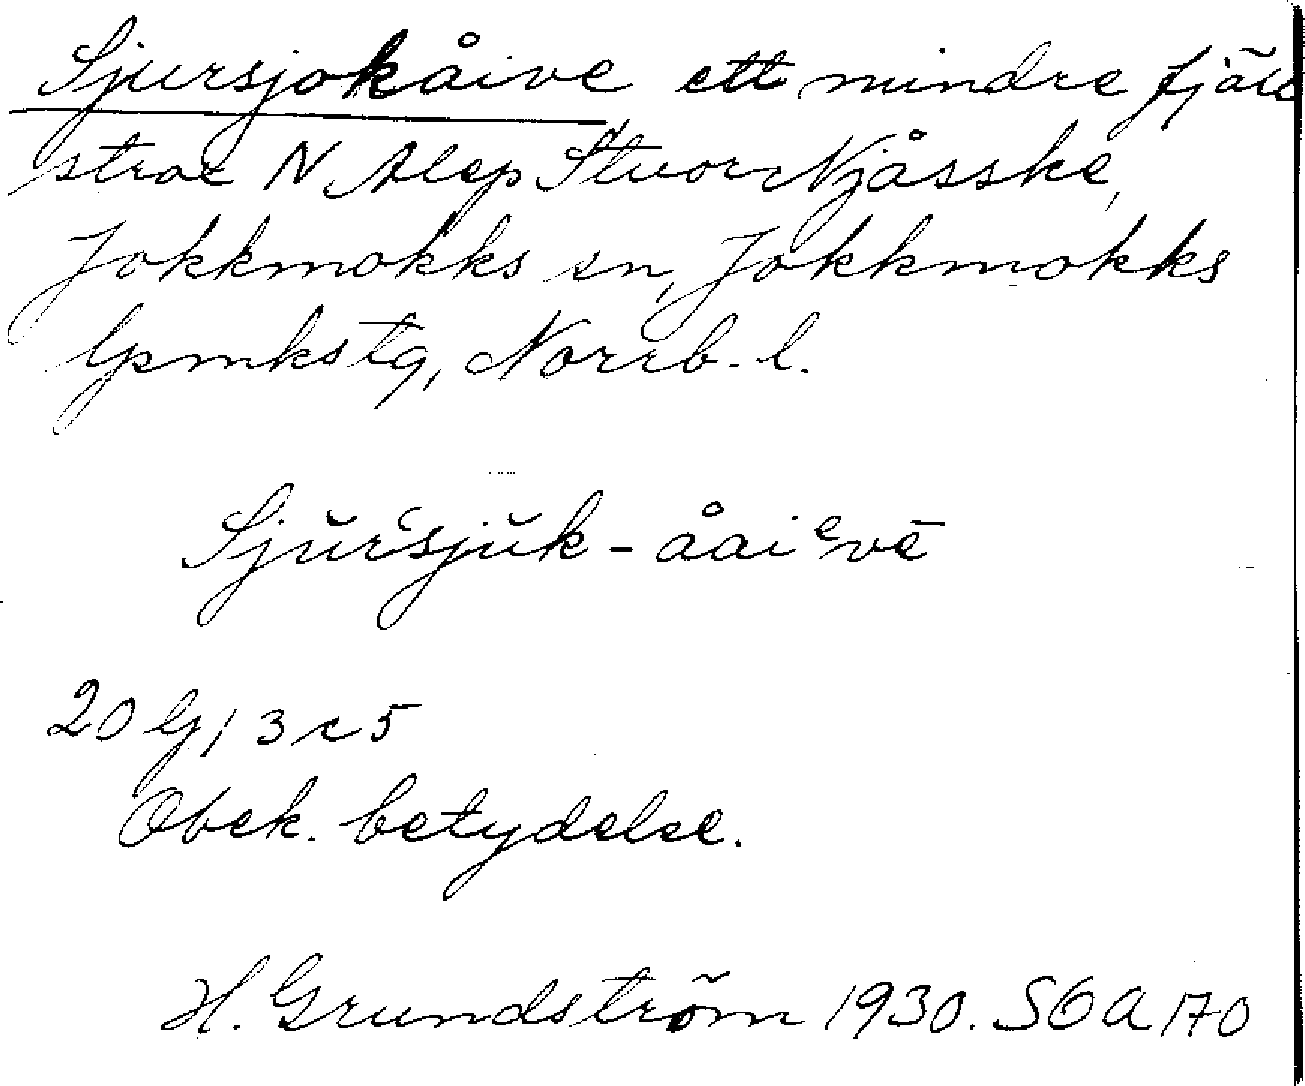 Sjursjokåive ett mindre fjäll
strax N Alep Stuor Njåsske,
Jokkmokks sn, Jokkmokks
lpmkstg, Norrb. l.
Sjŭrsjŭk-åaiᵉvē
20 G, 3 c 5
Obek. betydelse.
H. Grundström 1930. SOA 170